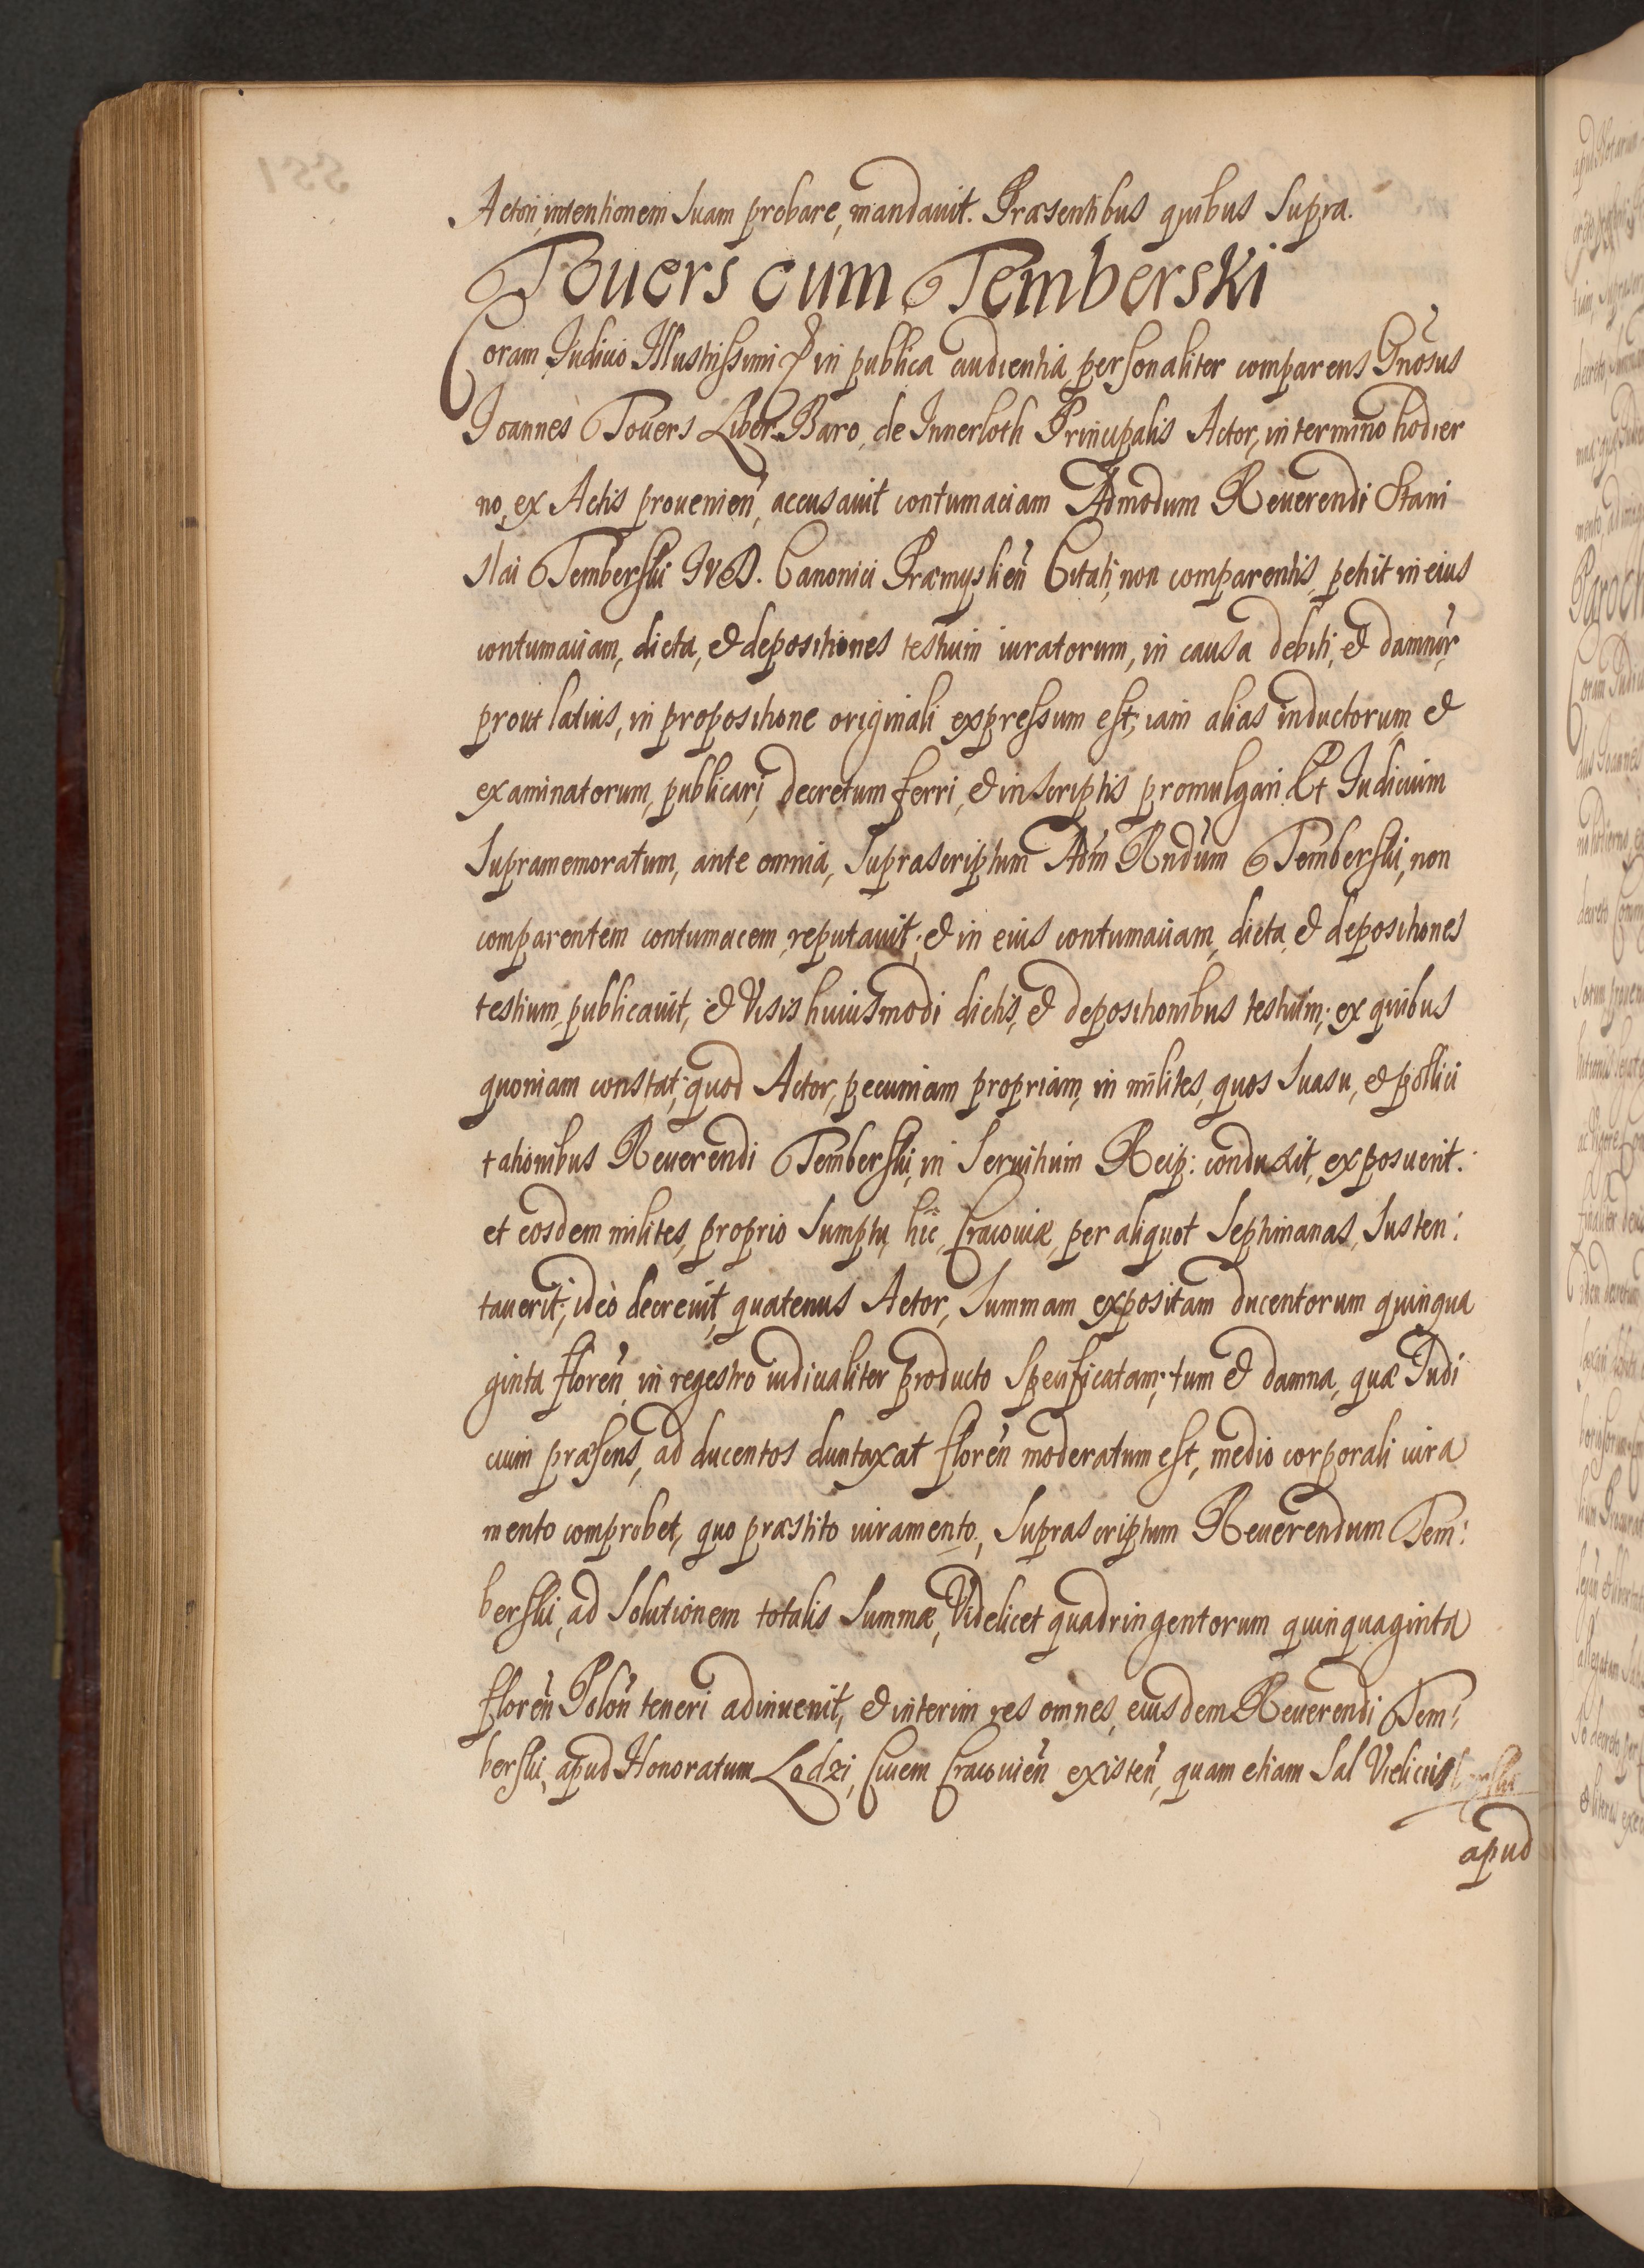 Actori, intentionem suam probare, mandavit. Præsentibus quibus supra.
Touers cum Temberski
Coram Iudicio Illustrissimi & in publica audientia personaliter comparens Gnõsus
Ioannes Touers Liber Baro, de Innerloth Principalis Actor, in termino hodier
no, ex Actis prouenien̄, accusauit contumaciam Admodum Reuerendi Stani
slai Temberski IVD. Canonici Præmyslien̄ Citati, non comparentis, petijt in eius
contumaciam, dicta, & depositiones testium iuratorum, in causa debiti, & damnor̄
prout latius, in propositione originali expressum est, iam alias inductorum, &
examinatorum, publicari, decretum ferri, & in scriptis promulgari. Et Iudicium
supramemoratum, ante omnia, suprascriptum Adm̄ Rndūm Temberski, non
comparentem contumacem, reputauit; & in eius contumaciam, dicta, & depositiones
testium, publicauit, & Visis huiusmodi dictis, & depositionibus testium; ex quibus
quoniam constat, quod Actor, pecuniam propriam, in milites, quos suasu, & pollici
tationibus Reuerendi Temberski, in seruitium Reip: conduxit, exposuerit:
et eosdem milites, proprio sumptu, hic, Cracouiæ, per aliquot septimanas, susten:
tauerit; ideò decreuit, quatenus Actor, summam expositam ducentorum quinqua
ginta floren̄ in regestro iudicialiter producto specificatam; tum & damna, quæ Iudi
cium præsens, ad ducentos duntaxat floren̄ moderatum est, medio corporali iura
mento comprobet, quo præstito iuramento, suprascriptum Reuerendum Tem:
berski, ad solutionem totalis summæ, Videlicet quadringentorum quinquaginta
floren̄ Polon̄ teneri adinuenit, & interim res omnes, eiusdem Reuerendi Tem:
berski, apud Honoratum Lodzi, Ciuem Cracouien̄ existen̄, quam etiam Sal Vieliciis
apud